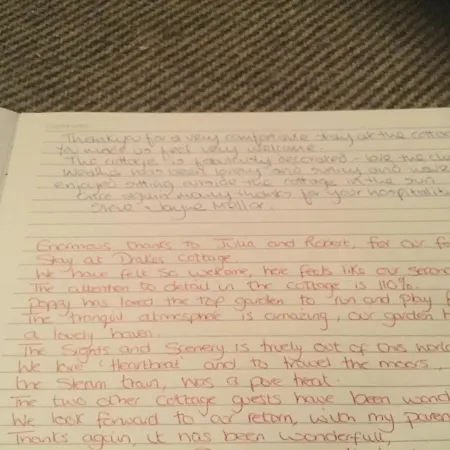 Thankyou for a very comfortable stay at the cottage
You made us feel very welcome.
The cottage is fabulously decorated - love the
Weather has been lovely and sunny and we've
enjoyed sitting outside the cottage in the sun.
Once again many thanks for your hospitality
Steve Jayne Mellor.
Enormous thanks to Julia and Robert, for our
Stay at Drakes Cottage.
We have felt so welcome, here feels like our second
The attention to detail in the cottage is 110%.
Poppy has loved the top garden to run and play
The tranquil atmosphere is amazing, our garden
a lovely haven.
The Sights and Scenery is truely out of this world
We love 'Heartbeat' and to travel the moors,
the Steam train, was a pure treat.
The two other cottage guests have been
We look forward to our return, with my
Thanks again, it has been wonderfull,